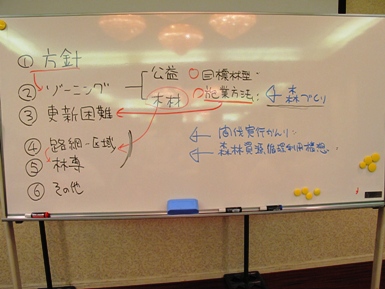 ① 方針
② ゾーニング
公益 ○目標林型
木材 ○施業方法: 森づくり
③ 更新困難
④ 路網-区域
⑤ 林専
⑥ その他
間伐実行かんり
森林資源循環利用構想